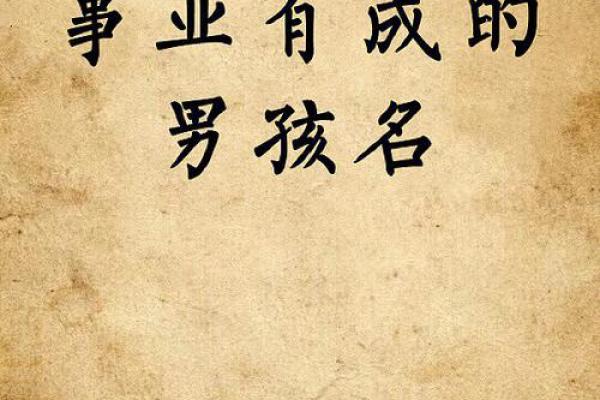 事业有成的
男孩名